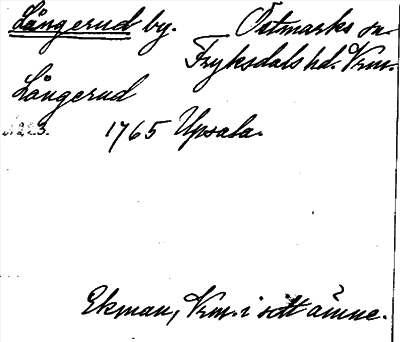 Långerud by. Östmarks sn.
Fryksdals hd. Vrm.
Långerud
s. 223. 1765 Upsala.
Ekman, Vrm. i sitt ämne.